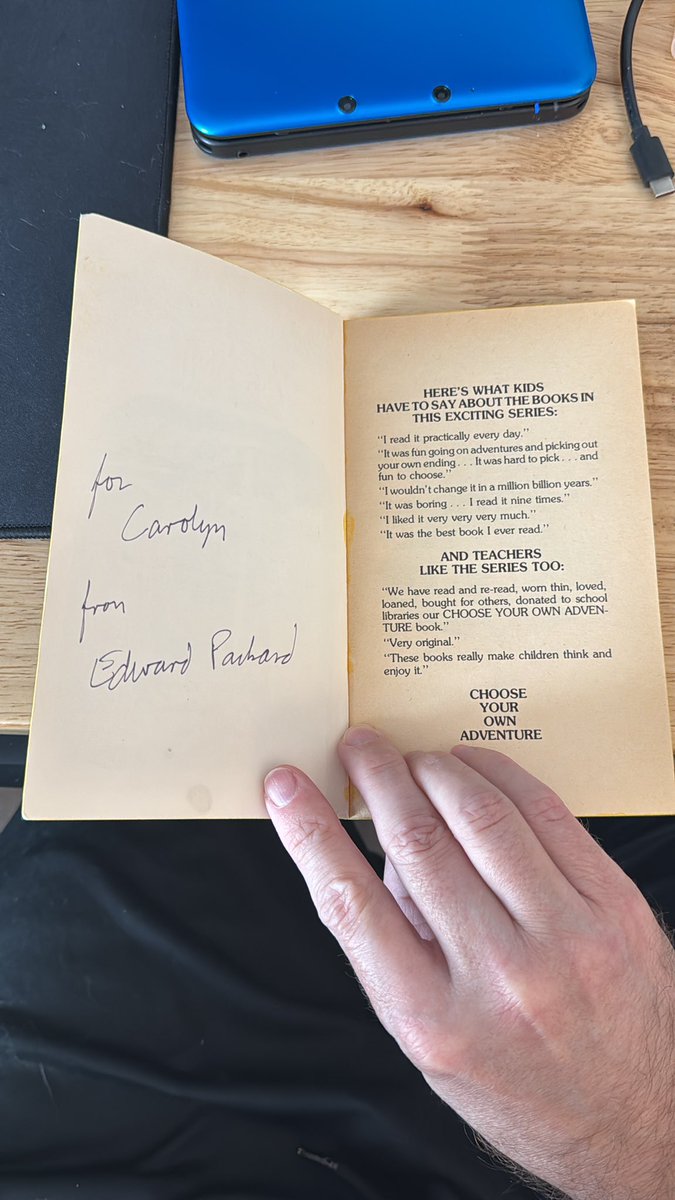 for
Carolyn
from
Edward Packard
HERE'S WHAT KIDS
HAVE TO SAY ABOUT THE BOOKS IN
THIS EXCITING SERIES:
"I read it practically every day."
"It was fun going on adventures and picking out
your own ending . . . It was hard to pick . . . and
fun to choose."
"I wouldn't change it in a million billion years."
"It was boring . . . I read it nine times."
"I liked it very very very much."
"It was the best book I ever read."
AND TEACHERS
LIKE THE SERIES TOO:
"We have read and re-read, worn thin, loved,
loaned, bought for others, donated to school
libraries our CHOOSE YOUR OWN ADVEN-
TURE book."
"Very original."
"These books really make children think and
enjoy it."
CHOOSE
YOUR
OWN
ADVENTURE